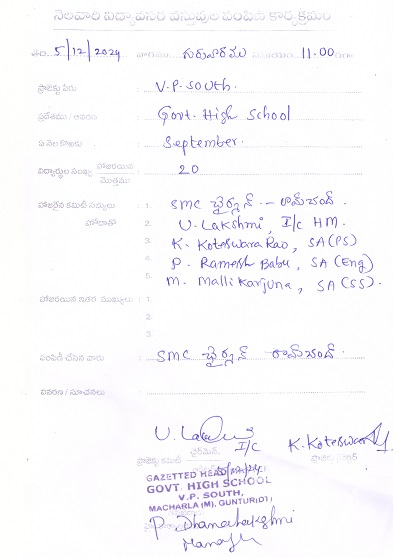 నెలవారి నిత్యావసర వస్తువుల పంపిణి కార్యక్రమం
తేది 5/12/2024 వారము గురువారము సమయం 11.00 గం
ప్రాజెక్టు పేరు : V.P. South.
ప్రదేశము / ఆవరణ : Govt. High School
ఏ నెల కొఱకు : September.
విద్యార్థుల సంఖ్య హాజరయిన / మొత్తము : 20
హాజరైన కమిటీ సభ్యులు : 1. SMC ఛైర్మన్ - రామ్‌చంద్.
హోదాతో 2. U. Lakshmi, I/c HM.
3. K. Koteswara Rao, SA (PS)
4. P. Ramesh Babu, SA (Eng)
5. M. Mallikarjuna, SA (SS).
హాజరయిన ఇతర ముఖ్యులు : 1
2
3
పంపిణి చేసిన వారు : SMC ఛైర్మన్ రామ్‌చంద్.
వివరణ / సూచనలు :
U. I/c K. Koteswar
ప్రాజెక్టు కమిటీ ఛైర్మన్
GAZETTED HEAD
GOVT. HIGH SCHOOL
V.P. SOUTH,
MACHARLA (M), GUNTUR(DT)
P. Dhanalakshmi
Manager